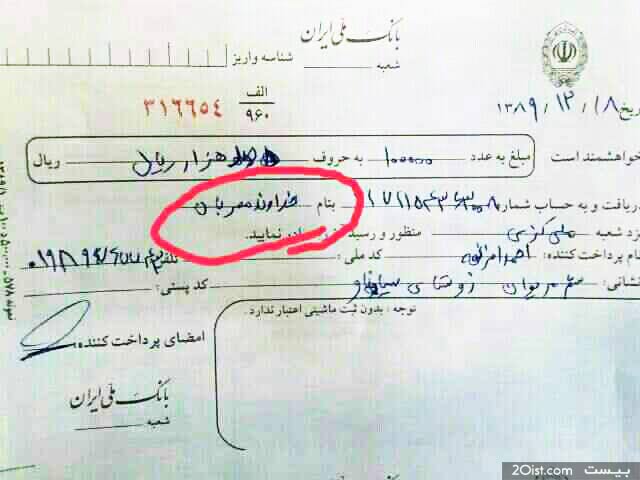 بانک ملی ایران
شعبه
شناسه واریز
تاریخ ۱۳۸۹/۱۲/۱۸
الف
۹۶۰
۳۱۶۶۵۴
خواهشمند است
مبلغ به عدد ۱۰۰۰۰۰ به حروف هزار ریال ریال
دریافت و به حساب شماره بنام خداوند مهربان
نزد شعبه ملی مرکزی منظور و رسید نمایید.
نام پرداخت کننده: احمد کد ملی: تلفن
نشانی: مریوان روستای کد پستی:
توجه: بدون ثبت ماشینی اعتبار ندارد.
امضای پرداخت کننده:
بانک ملی ایران
شعبه
بیست 20ist.com